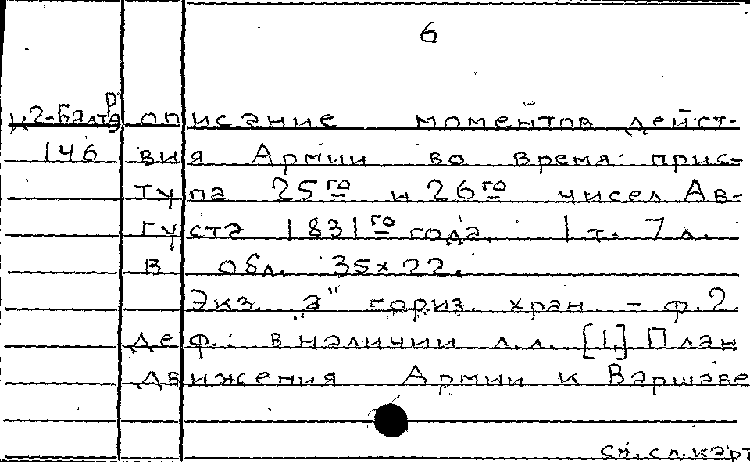 6
описание моментов дейст-
146 вия Армии во время прис-
тупа 25го и 26го чисел Ав-
густа 1831го года. 1 т. 7 л.
В обл. 35×22.
Экз. "а" гориз. хран. - ф. 2
деф.: в наличии л.л. [1] План
движения Армии к Варшаве
см. сл. карт